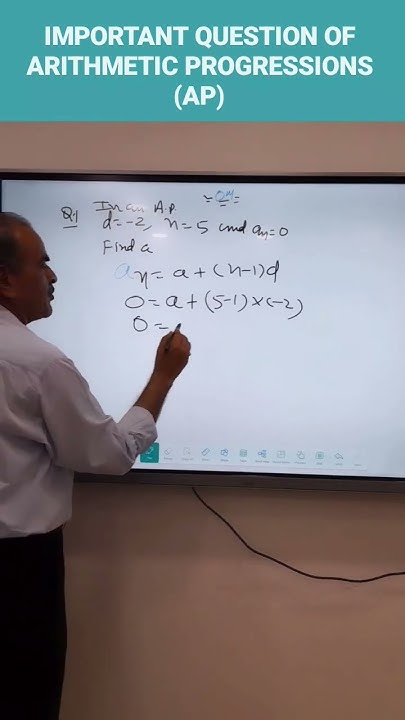 IMPORTANT QUESTION OF
ARITHMETIC PROGRESSIONS
(AP)
= OM =
Q.1 In an A.P.
d=-2, n=5 and an=0
Find a
an = a + (n-1)d
0 = a + (5-1)×(-2)
0 =